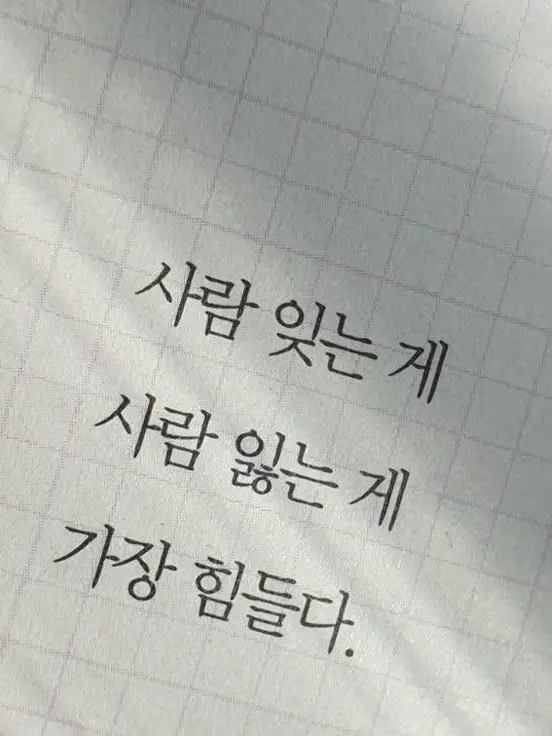 사람 잊는 게
사람 잃는 게
가장 힘들다.